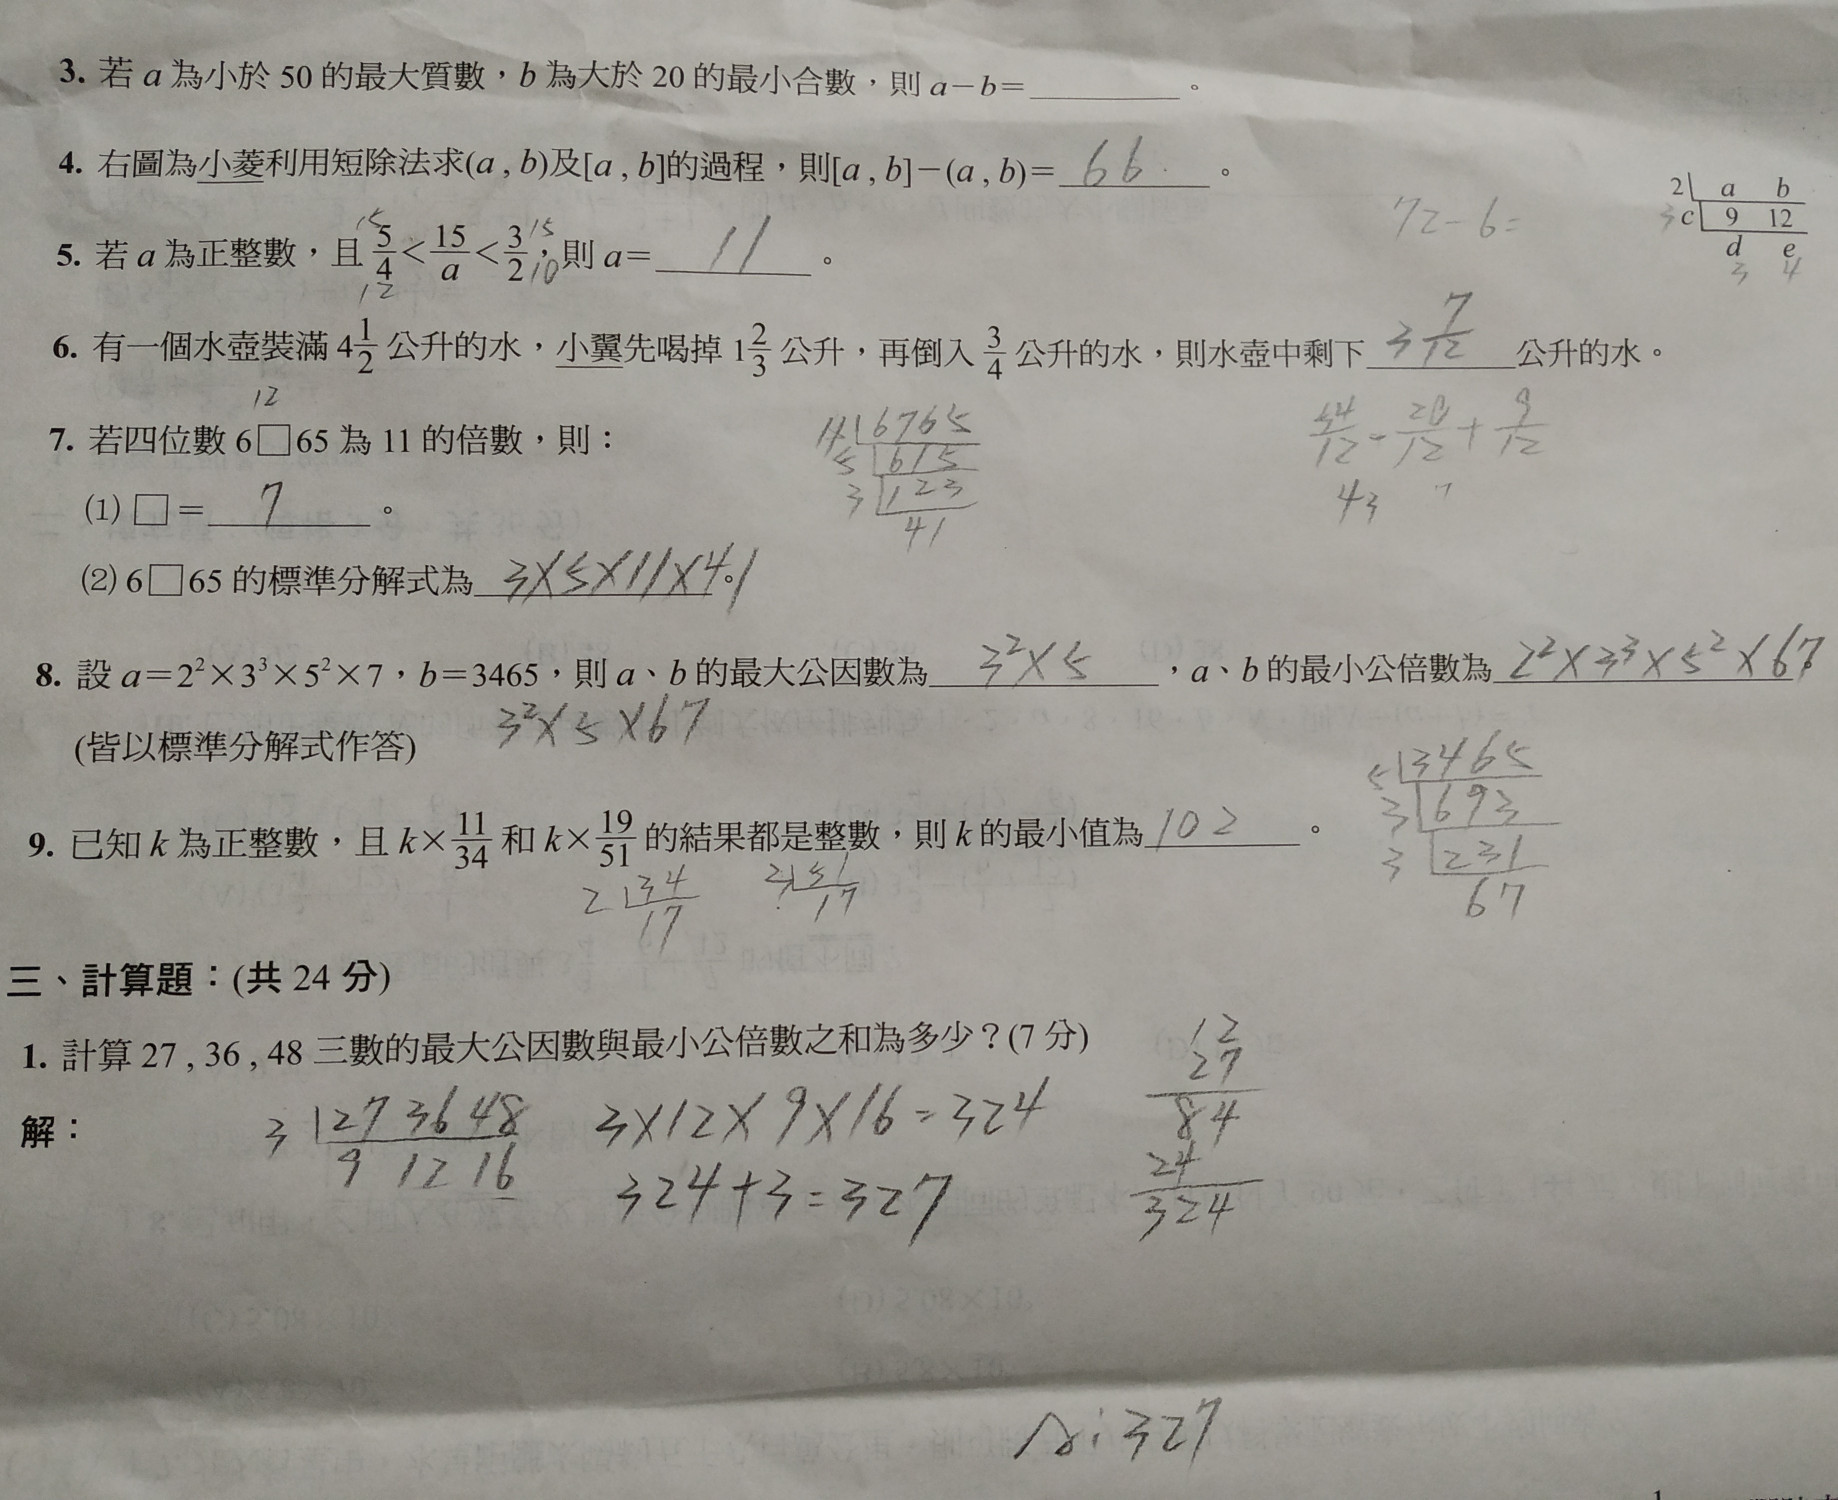 3. 若 a 為小於 50 的最大質數，b 為大於 20 的最小合數，則 a－b＝________。
4. 右圖為小菱利用短除法求(a , b)及[a , b]的過程，則[a , b]－(a , b)＝ 66 。
72－6＝
2 a b
3 c 9 12
d e
3 4
15 15
5. 若 a 為正整數，且 5/4 < 15/a < 3/2，則 a＝ 11 。
12 10
6. 有一個水壺裝滿 4 1/2 公升的水，小翼先喝掉 1 2/3 公升，再倒入 3/4 公升的水，則水壺中剩下 3 7/12 公升的水。
54/12 - 20/12 + 9/12
43
12
7. 若四位數 6□65 為 11 的倍數，則：
11 6765
5 615
3 123
41
(1) □＝ 7 。
(2) 6□65 的標準分解式為 3×5×11×41 。
8. 設 a＝2²×3³×5²×7，b＝3465，則 a、b 的最大公因數為 3²×5 ，a、b 的最小公倍數為 2²×3³×5²×67
(皆以標準分解式作答)
3²×5×67
5 3465
3 693
3 231
67
9. 已知 k 為正整數，且 k×11/34 和 k×19/51 的結果都是整數，則 k 的最小值為 102 。
2 34
17
51
17
三、計算題：(共 24 分)
1. 計算 27 , 36 , 48 三數的最大公因數與最小公倍數之和為多少？(7 分)
解：
3 27 36 48
9 12 16
3×12×9×16=324
324+3=327
12
27
84
24
324
A:327